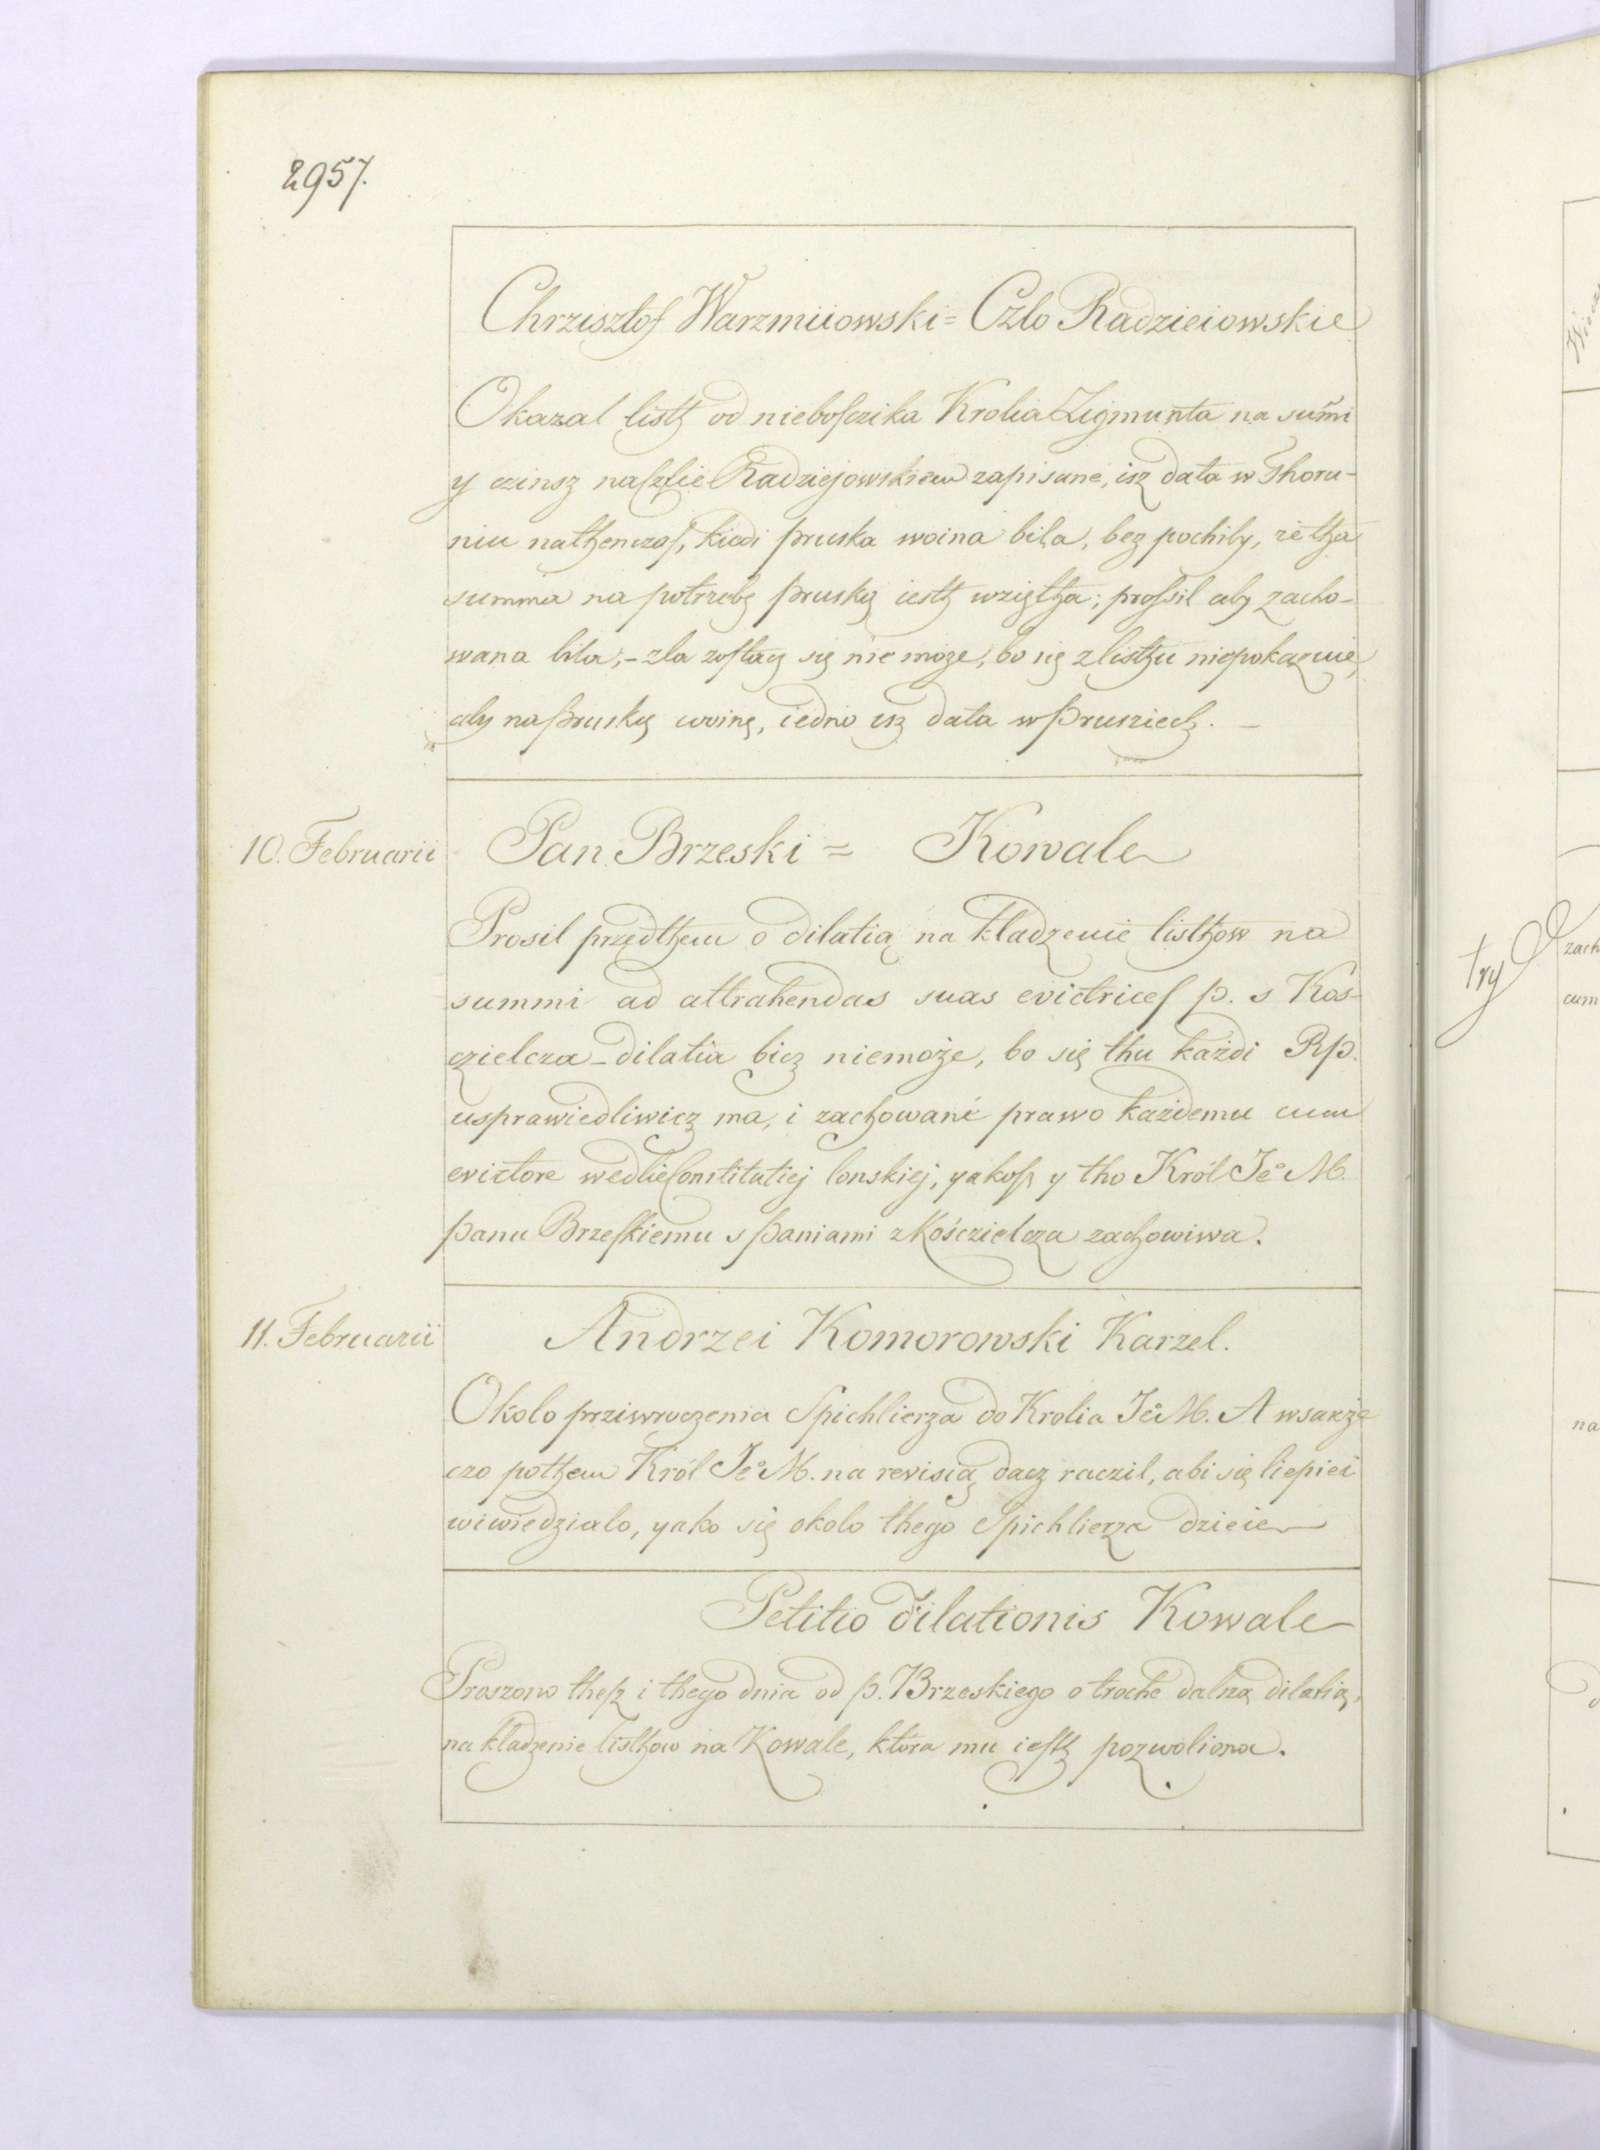 2957.
Chrzisztof Warzmiiowski = Czlo Radzieiowskie
Okazal listh od nieboſczika Krolia Zigmunta na sum̃i
y czinsz na Czlie Radziejowskiem zapisane, isz data w Thoru-
niu nathenczaſ, kiedi pruska woina bila, bez pochiby, że tha
summa na potrzebę pruską iesth wziętha; proſsil aby zacho-
wana bila, – zla zostacz się nie może, bo się z listhu niepokazuie,
aby na pruską woinę, iedno isz data w Prusiech. –
10. Februarii
Pan Brzeski = Kowale
Prosil przedthem o dilatią na kladzenie listhow na
summi ad attrahendas suas evictriceſ p. s Kos-
czielcza – dilatia bicz niemoże, bo się thu każdi Rp.
usprawiedliwicz ma, i zachowane prawo każdemu cum
evictore wedlie Constitutiej lonskiej, yakoſz y tho Król Je° M.
panu Brzeſkiemu s paniami z Kościelcza zachowiwa.
11. Februarii
Andrzei Komorowski Karzel.
Okolo prziwroczenia Spichlierza do Krolia Je° M. A wsakże
czo pothem Król Je° M. na revisią dacz raczil, abi się liepiei
wiwiedzialo, yako się okolo thego Spichlierza dzieie
Petitio dilationis Kowale
Proszono theſz i thego dnia od p. Brzeskiego o troche dalszą dilatią,
na kladzenie listhow na Kowale, ktora mu iesth pozwoliona.
try
zach
cum
na